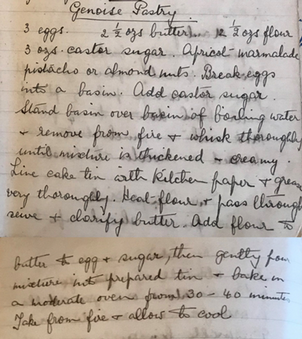 Genoise Pastry.
3 eggs. 2 ½ ozs butter. 2 ½ ozs flour
3 ozs. castor sugar. Apricot marmalade
pistacho or almond nuts. Break eggs
into a basin. Add castor sugar.
Stand basin over basin of boiling water
+ remove from fire + whisk thoroughly
until mixture is thickened + creamy.
Line cake tin with kitchen paper + grease
very thoroughly. Heat flour + pass through
seive + clarify butter. Add flour +
butter to egg + sugar, then gently pour
mixture into prepared tin + bake in
a moderate oven from 30 - 40 minutes
Take from fire + allow to cool